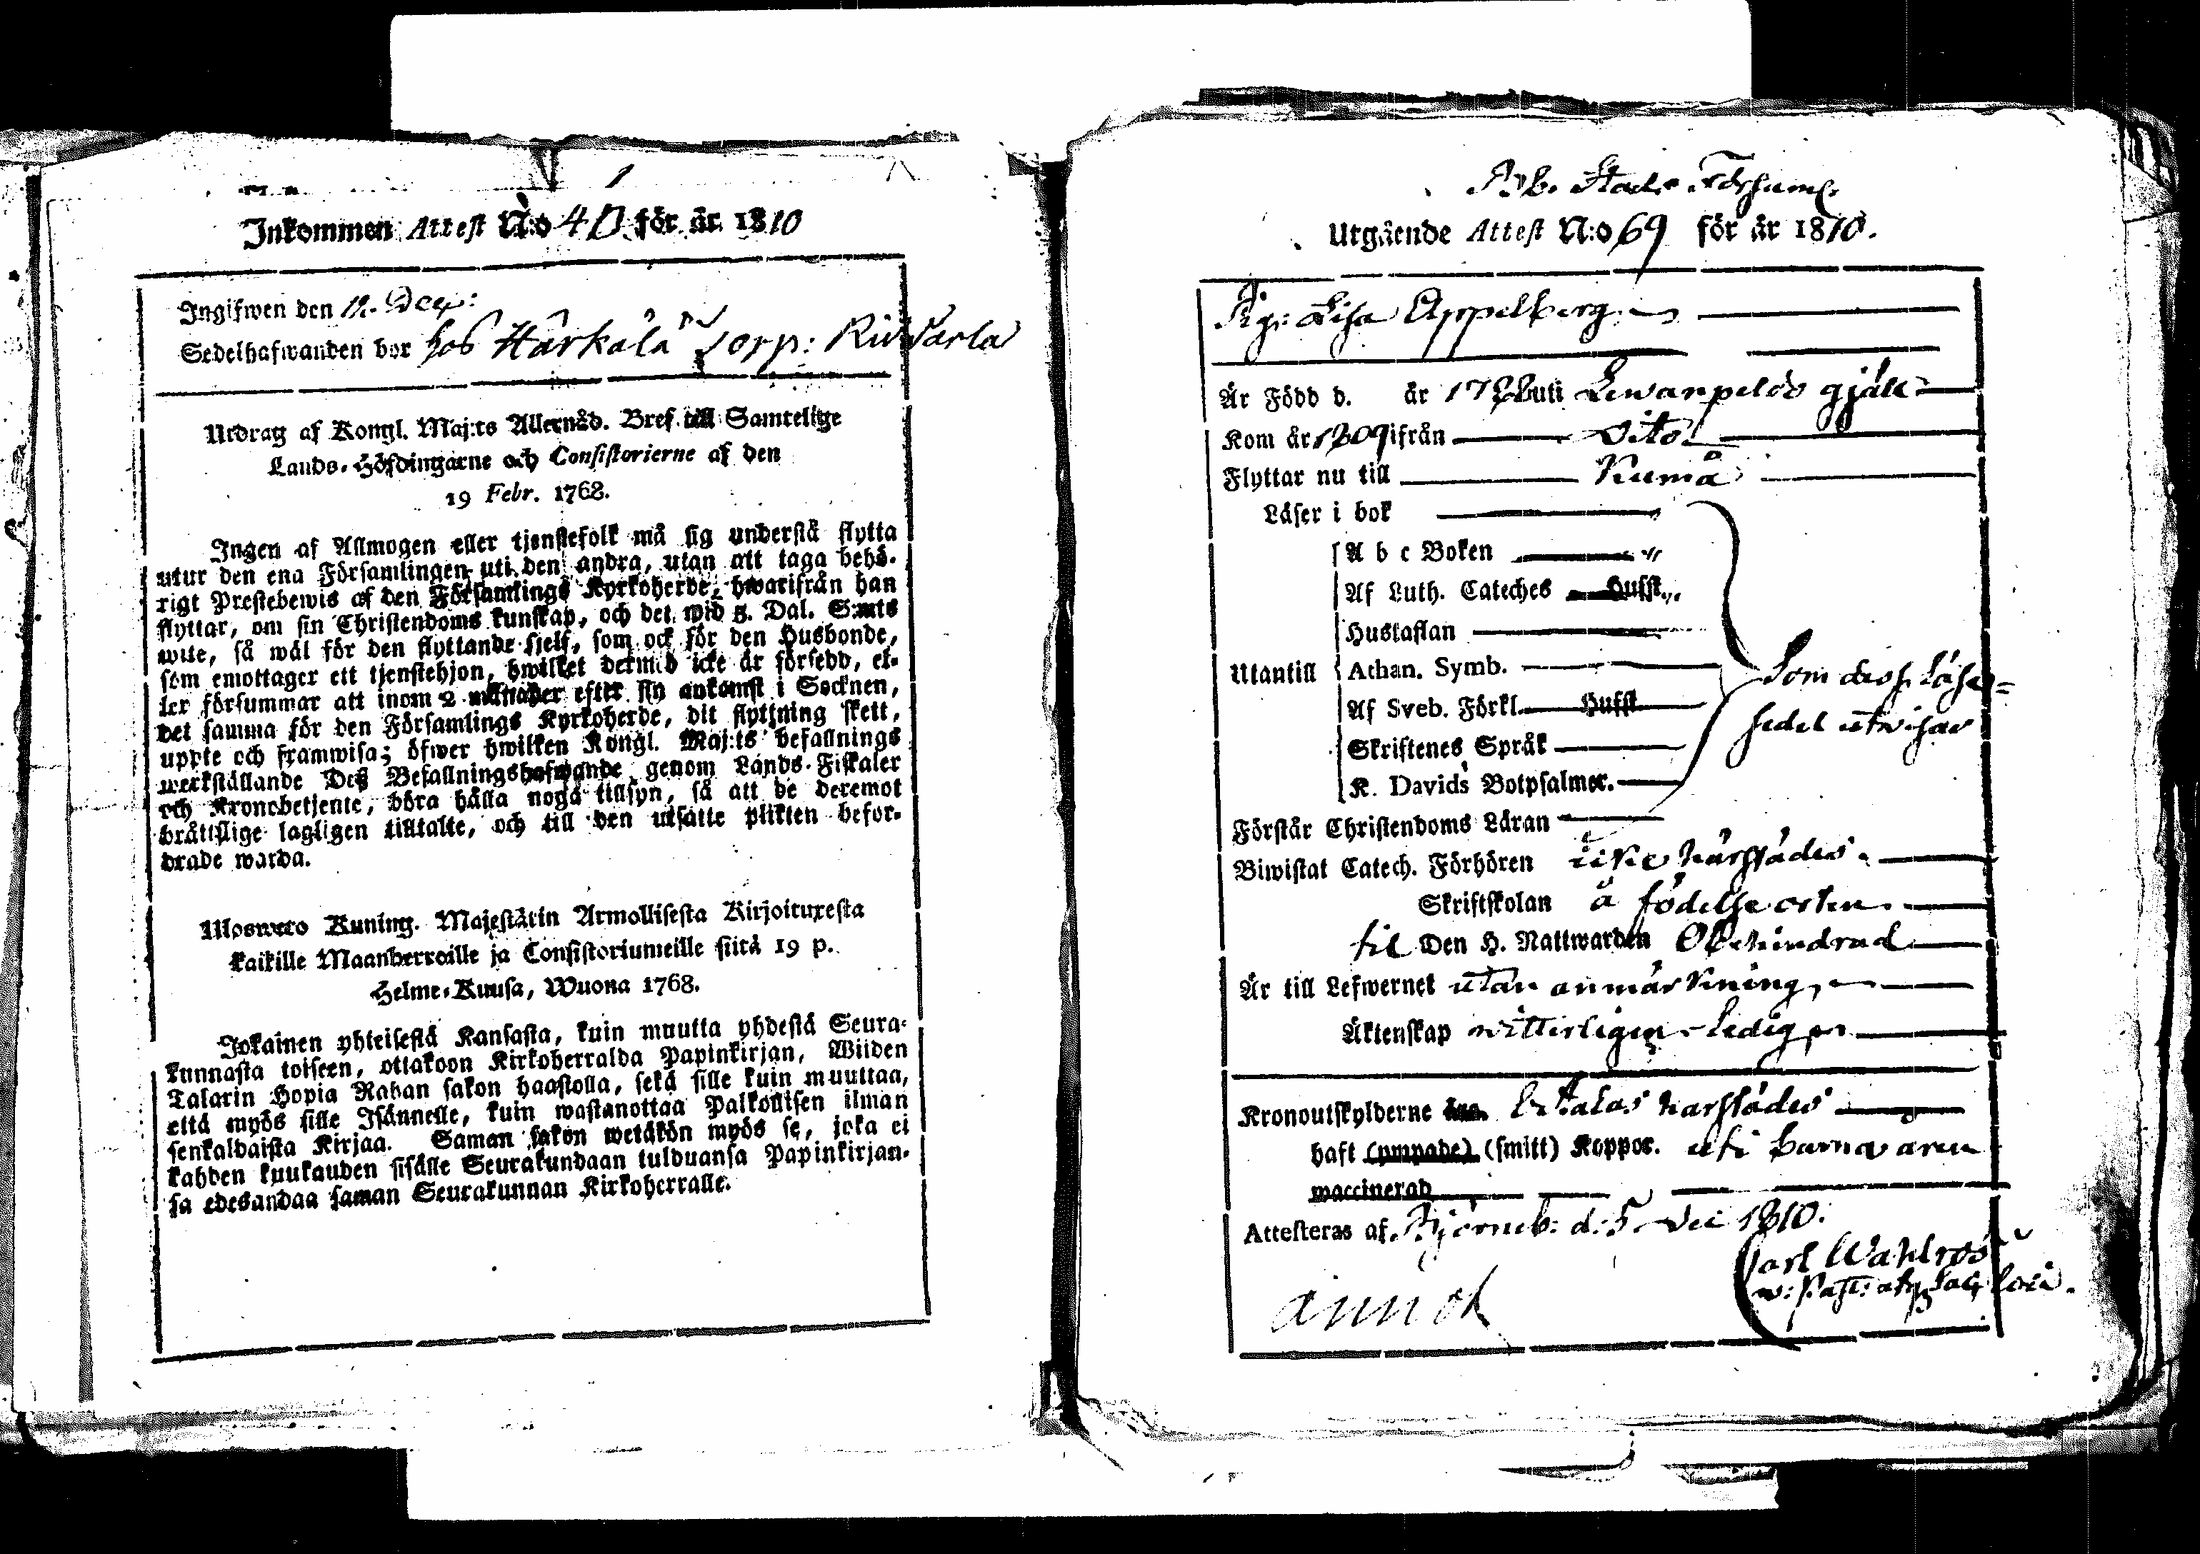 Inkommen Attest N:o 40 för år 1810
Ingifwen den 12. Dec:
Sedelhafwanden bor hos Härkälä Torp: Riddarla
Utdrag af Kongl. Maj:ts Allernåd. Bref till Samtelige
Lands-Höfdingarne och Consistorierne af den
19 Febr. 1768.
Ingen af Allmogen eller tjenstefolk må sig understå flytta
utur den ena Församlingen uti den andra, utan att taga behö-
rigt Prestebewis af den Församlings Kyrkoherde, hwarifrån han
flyttar, om sin Christendoms kunskap, och det wid 5. Dal. S:mts
wite, så wäl för den flyttande sjelf, som ock för den Husbonde,
som emottager ett tjenstehjon, hwilket dermed icke är försedd, el-
ler försummar att inom 2 månader efter sin ankomst i Socknen,
det samma för den Församlings Kyrkoherde, dit flyttning skett,
uppte och framwisa; öfwer hwilken Kongl. Maj:ts befallnings
werkställande Deß Befallningshafwande genom Lands-Fiskaler
och Kronobetjente, böra hålla noga tillsyn, så att de deremot
bråttslige lagligen tilltalte, och till den utsatte plikten befor-
drade warda.
Ulosweto Kuning. Majestätin Armollisesta Kirjoituxesta
kaikille Maanherroille ja Consistoriumeille siitä 19 p.
Helme-Kuusa, Wuona 1768.
Jokainen yhteisestä Kansasta, kuin muutta yhdestä Seura-
kunnasta toiseen, ottakoon Kirkoherralda Papinkirjan, Wiiden
Talarin Hopia Rahan sakon haastolla, sekä sille kuin muuttaa,
että myös sille Isännelle, kuin wastanottaa Palkollisen ilman
senkaldaista Kirjaa. Saman sakon wetäkön myös se, joka ei
kahden kuukauden sisälle Seurakundaan tulduansa Papinkirjan-
sa edesandaa saman Seurakunnan Kirkoherralle.
Bjb. Stads Församl.
Utgående Attest N:o 69 för år 1810.
Pig: Lisa Appelberg
Är Född d. år uti Lewanpeldo gjäll
Kom år 1809 ifrån dito
Flyttar nu till Kumå
Läser i bok
A b c Boken
Af Luth. Cateches Hufst.
Hustaflan
Utantill Athan. Symb.
Som dess Läse-
sedel utwisar
Af Sveb. Förkl. Hufst.
Skriftenes Språk
K. Davids Botpsalmer.
Förstår Christendoms Läran
Biwistat Catech. Förhören icke härstädes.
Skriftskolan å födelse orten.
til Den H. Nattwarden Obehindrad
Är till Lefwernet utan anmärkning,
Äktenskap witterligen ledig
Kronoutskylderne betalas härstädes
haft (ympade) (smitt) Koppor. uti barna åren
waccinerad
Attesteras af Björneb: d: 5 Dec 1810.
Carl Wahlroos
ann ok